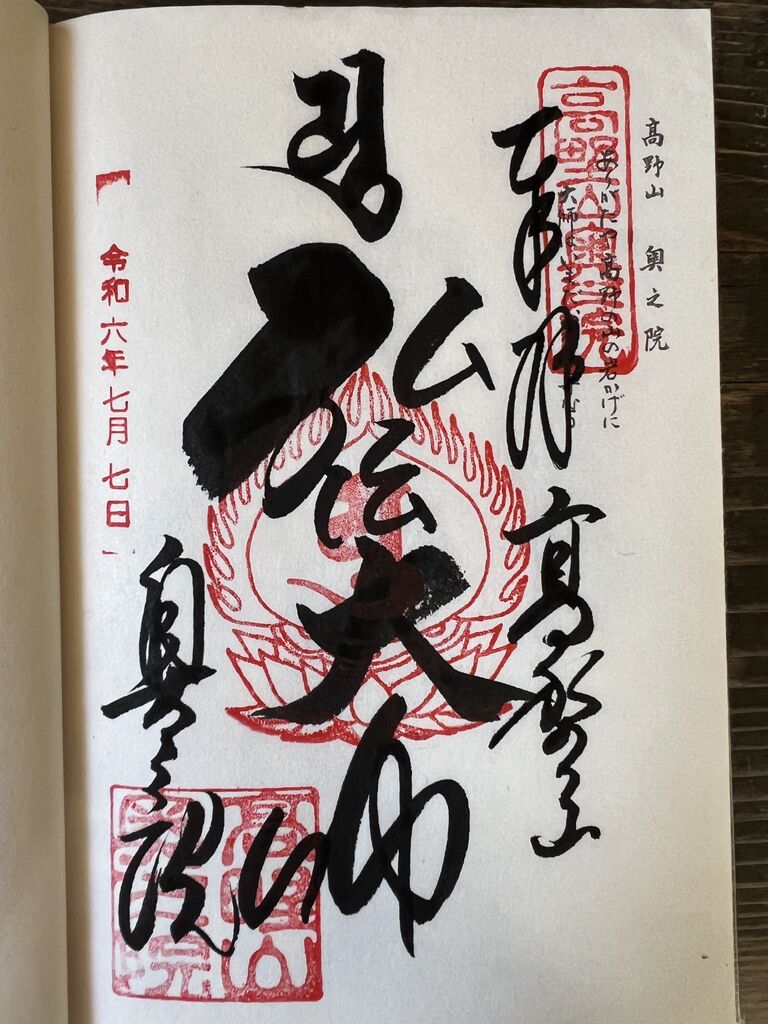 高野山 奥之院
ありがたや高野の山の岩かげに
大師はいまだ なる
高野山奥之院
奉拝 高野山
弘法大師
奥之院
令和六年七月七日
高野山
奥之院